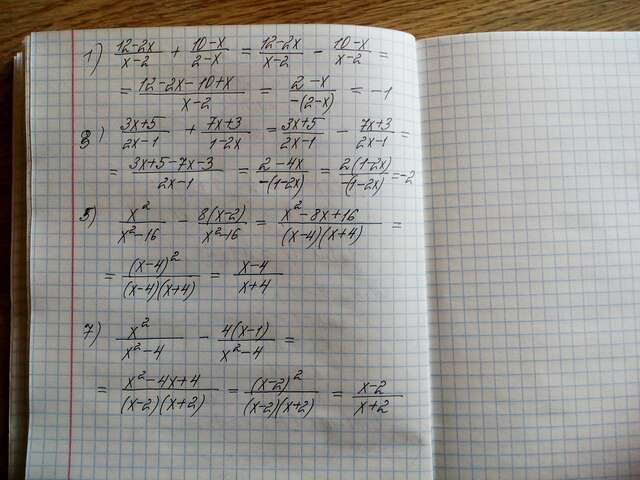 1) (12-2x)/(x-2) + (10-x)/(2-x) = (12-2x)/(x-2) - (10-x)/(x-2) =
= (12-2x-10+x)/(x-2) = (2-x)/(-(2-x)) = -1
3) (3x+5)/(2x-1) + (7x+3)/(1-2x) = (3x+5)/(2x-1) - (7x+3)/(2x-1) =
= (3x+5-7x-3)/(2x-1) = (2-4x)/(-(1-2x)) = (2(1-2x))/(-(1-2x)) = -2
5) x²/(x²-16) - (8(x-2))/(x²-16) = (x²-8x+16)/((x-4)(x+4)) =
= (x-4)²/((x-4)(x+4)) = (x-4)/(x+4)
7) x²/(x²-4) - (4(x-1))/(x²-4) =
= (x²-4x+4)/((x-2)(x+2)) = (x-2)²/((x-2)(x+2)) = (x-2)/(x+2)